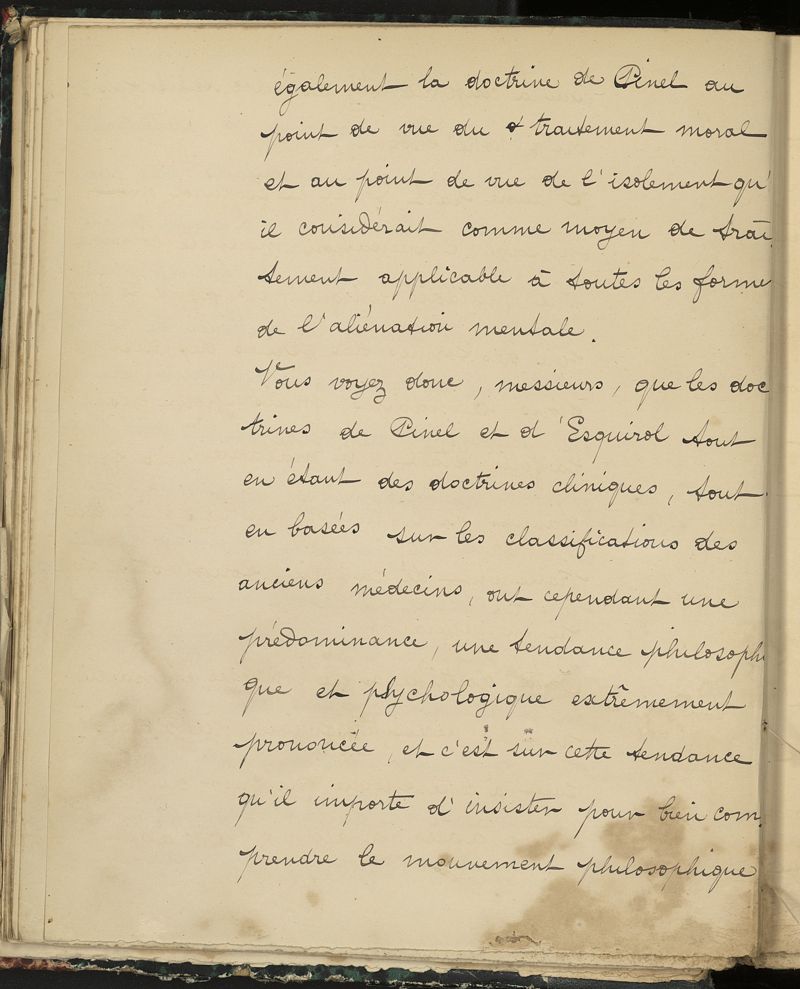 également la doctrine de Pinel au
point de vue du traitement moral
et au point de vue de l'isolement qu'
il considérait comme moyen de trai
tement applicable à toutes les forme
de l'aliénation mentale.
Vous voyez donc, messieurs, que les doc
trines de Pinel et d'Esquirol tout
en étant des doctrines cliniques, tout
en basées sur les classifications des
anciens médecins, ont cependant une
prédominance, une tendance philosophi
que et psychologique extrêmement
prononcée, et c'est sur cette tendance
qu'il importe d'insister pour bien com.
prendre le mouvement philosophique